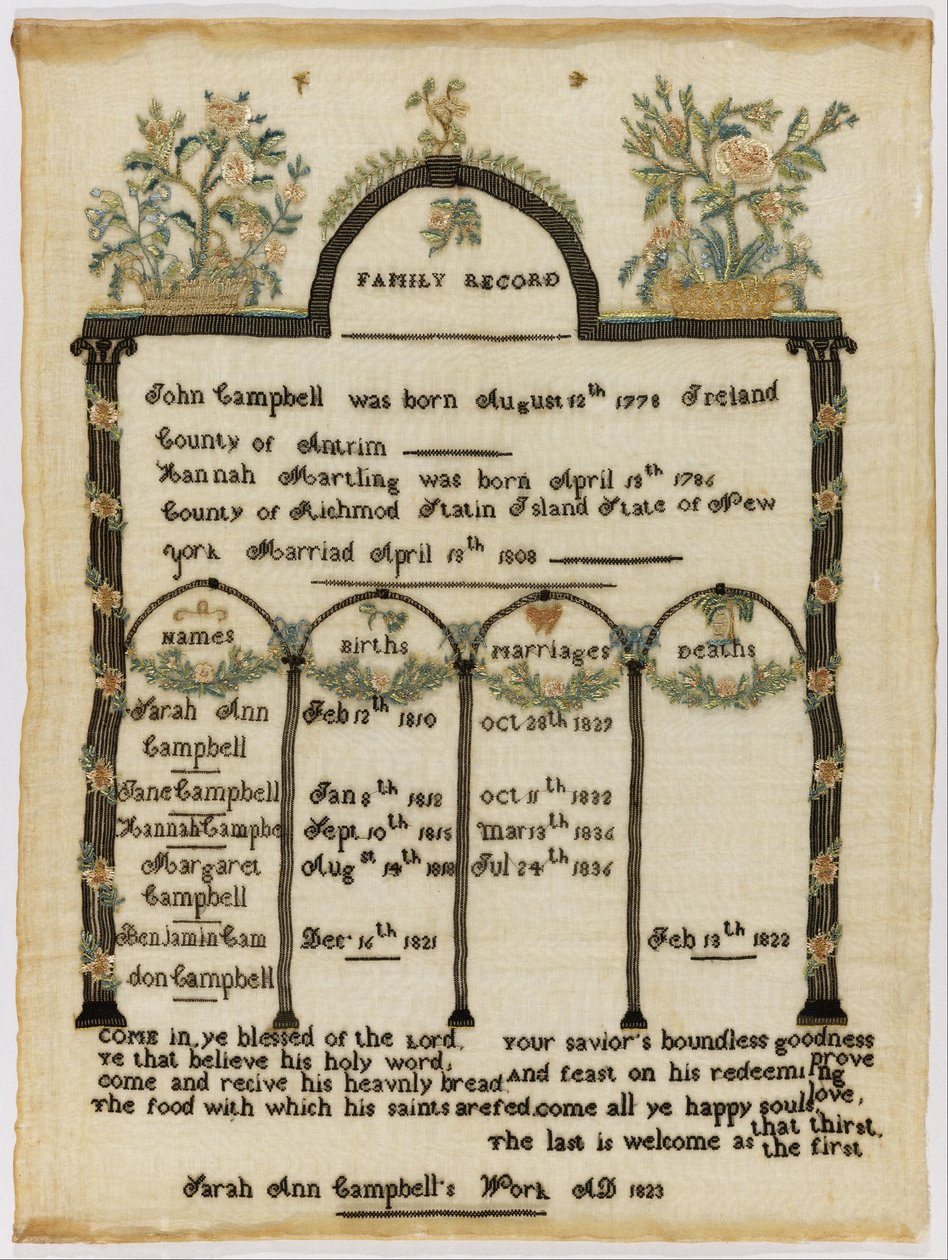 FAMILY RECORD
John Campbell was born August 12th 1778 Ireland
County of Antrim
Hannah Martling was born April 18th 1786
County of Richmod Statin Island State of New
York Marriad April 18th 1808
Names Births Marriages Deaths
Sarah Ann Feb 12th 1810 oct 28th 1829
Campbell
Jane Campbell Jan 8th 1812 oct 11th 1832
Hannah Campbe Sept 10th 1815 Mar 13th 1836
Margaret Augst 14th 1818 Jul 24th 1836
Campbell
Benjamin Cam Dec 16th 1821 Feb 13th 1822
don Campbell
COME in, ye blessed of the Lord,
Ye that believe his holy word,
come and recive his heavnly bread
The food with which his saints are fed.
Your savior's boundless goodness prove
And feast on his redeeming love,
come all ye happy souls that thirst,
The last is welcome as the first
Sarah Ann Campbell's Work AD 1823